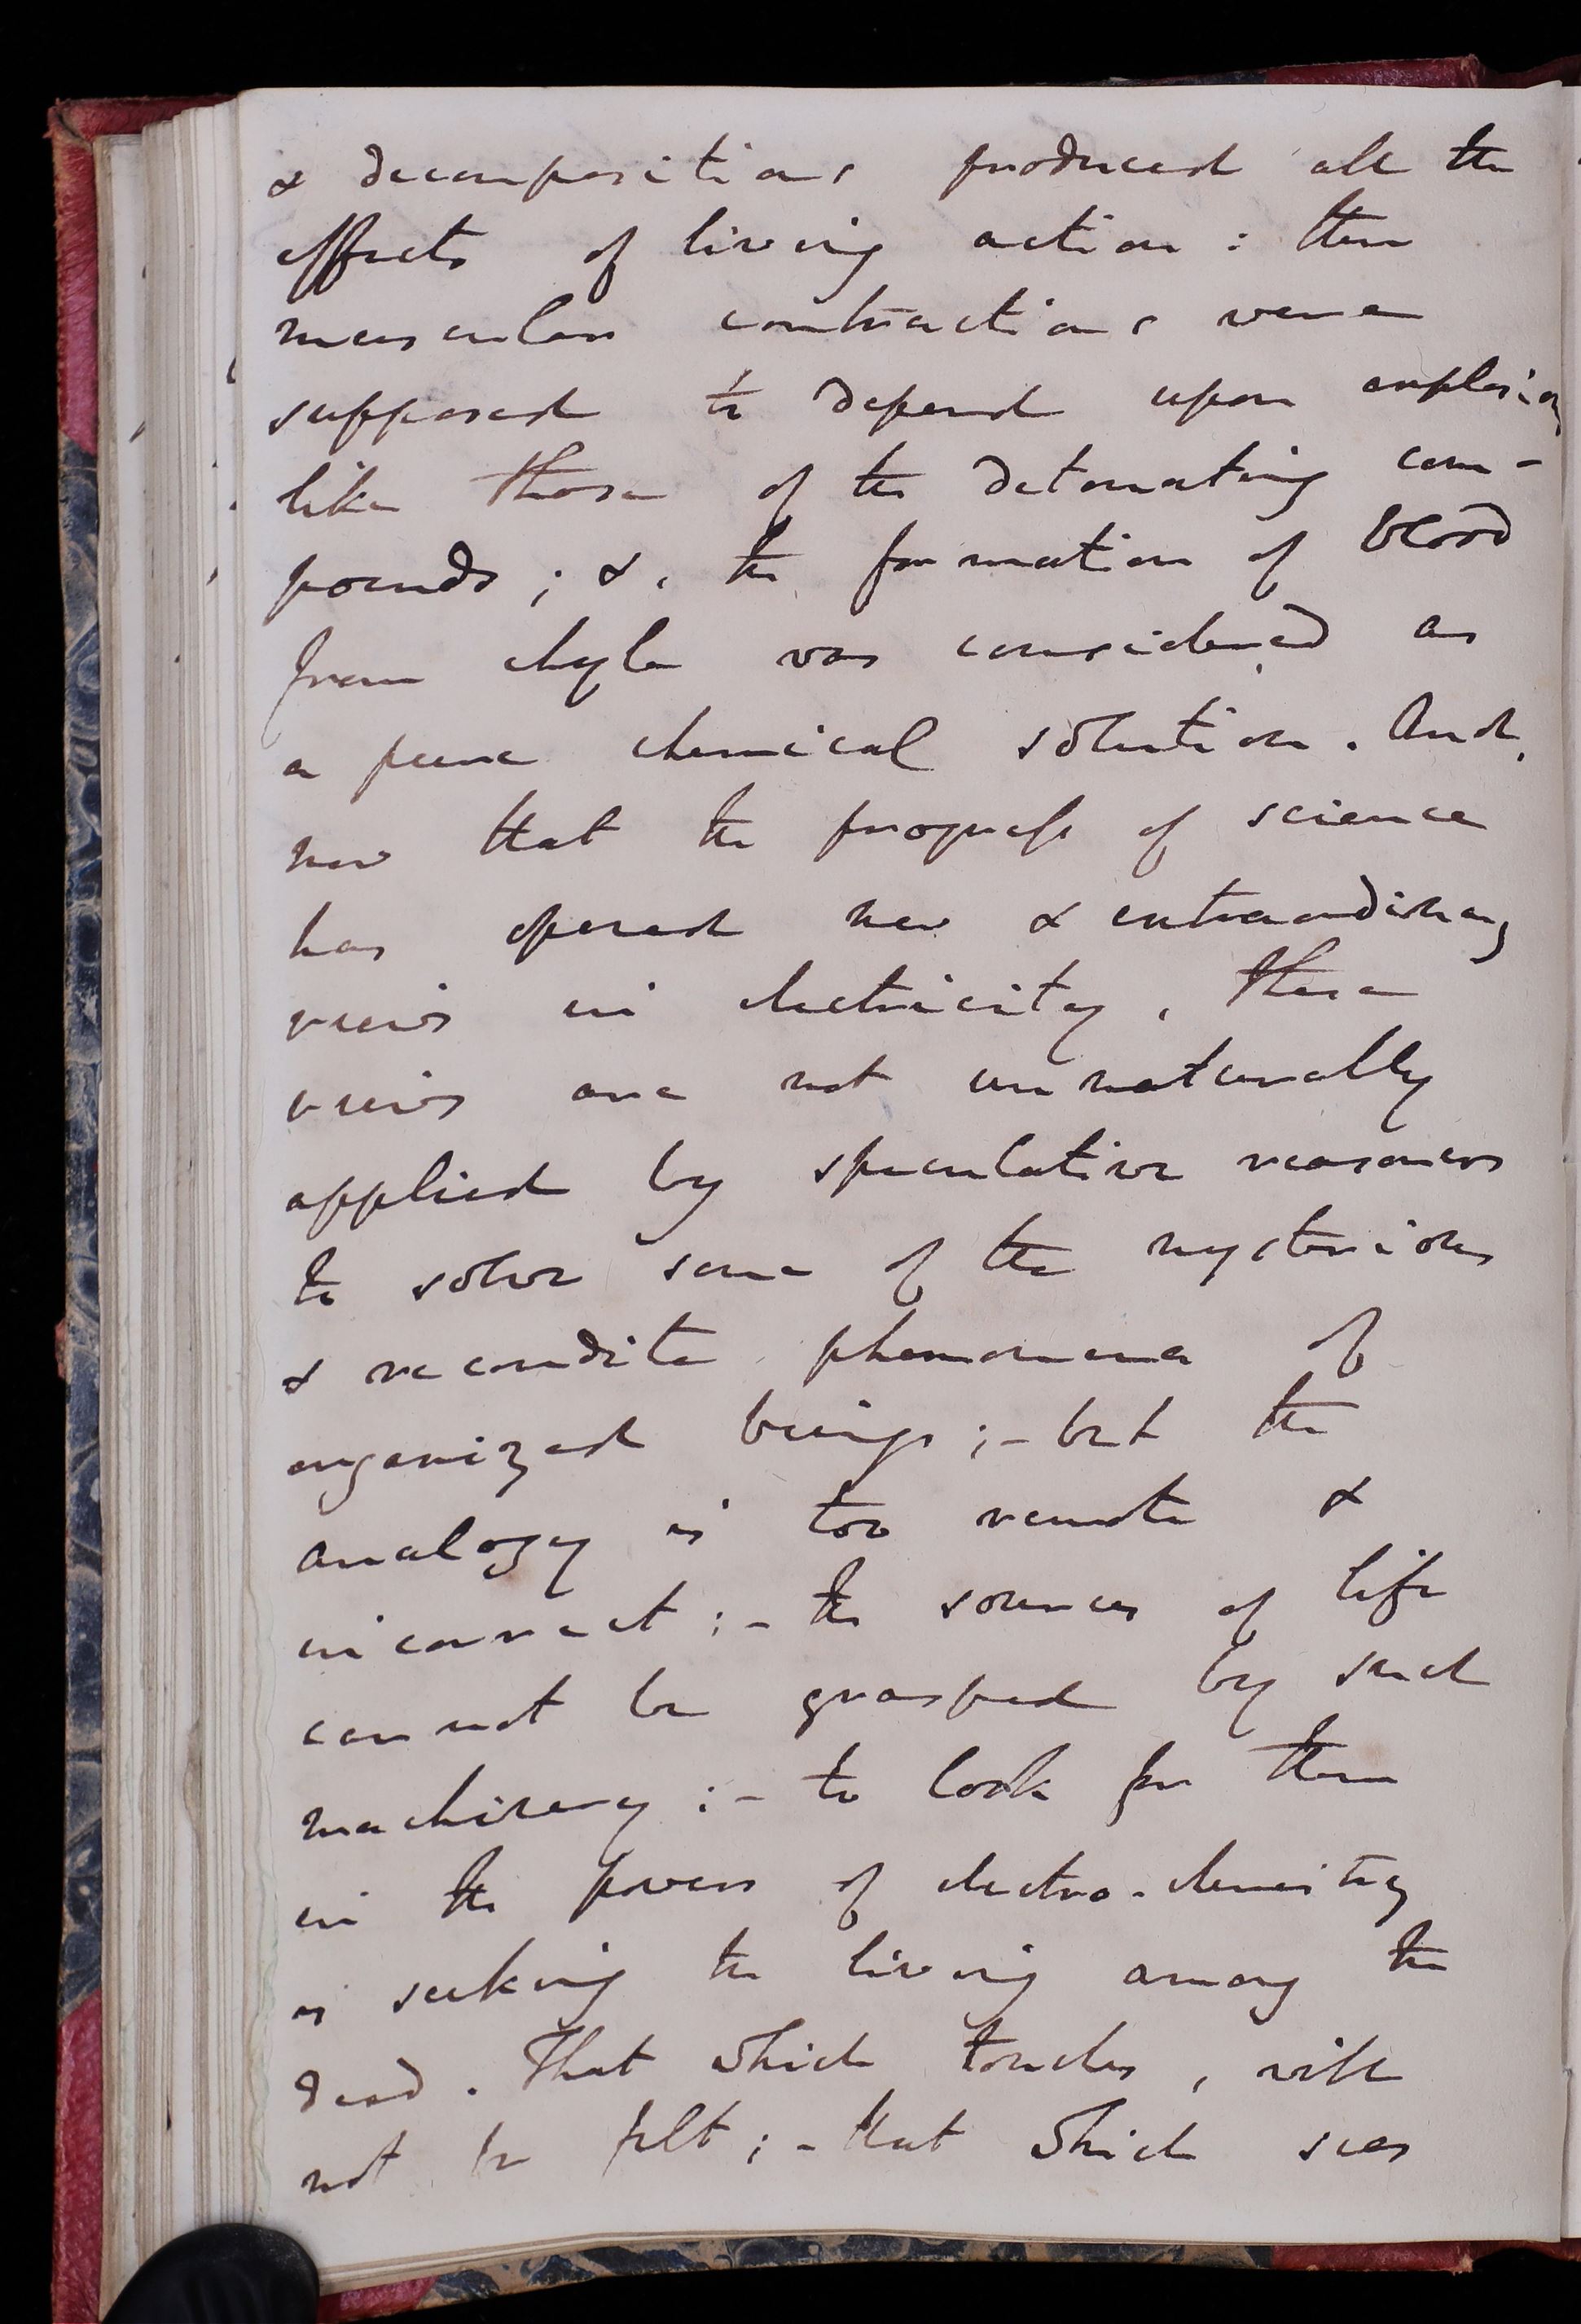 & decompositions produced all the
effects of living action: then
muscular contractions were
supposed to depend upon explosions
like those of the detonating com-
pounds; &, the formation of blood
from chyle was considered as
a pure chemical solution. And,
now that the progress of science
has opened new & extraordinary
views in electricity, these
views are not unnaturally
applied by speculative reasoners
to solve some of the mysterious
& recondite phenomena of
organized beings;- but the
analogy is too remote &
incorrect:- the sources of life
cannot be grasped by such
machinery:- to look for them
in the powers of electro-chemistry
is seeking the living among the
dead. That which touches, will
not be felt;- that which sees